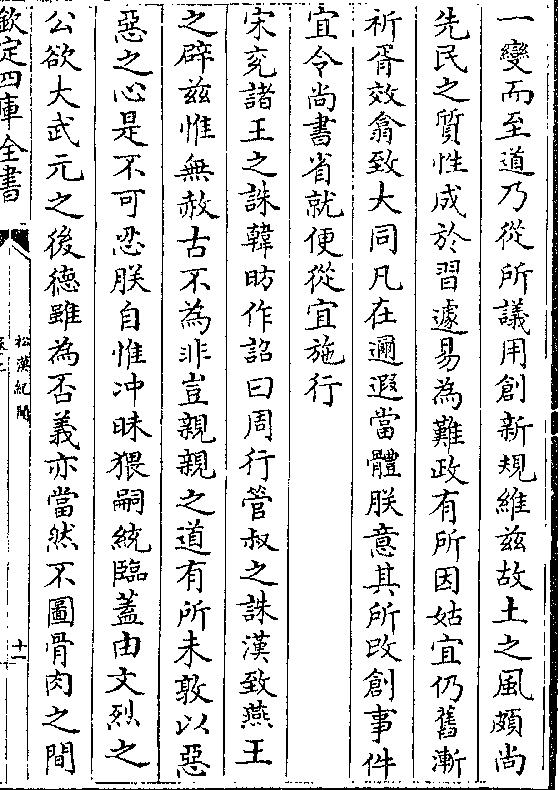 一變而至道乃從所議用創新規維兹故土之風頗尚
先民之質性成於習遽易為難政有所因姑宜仍舊漸
祈胥效翕致大同凡在邇遐當體朕意其所改創事件
宜令尚書省就便從宜施行
宋兗諸王之誅韓昉作詔曰周行管叔之誅漢致燕王
之辟兹惟無赦古不為非豈親親之道有所未敦以惡
惡之心是不可忍朕自惟冲昧猥嗣統臨蓋由文烈之
公欲大武元之後德雖為否義亦當然不圖骨肉之間
欽定四庫全書
松漠紀聞
十一